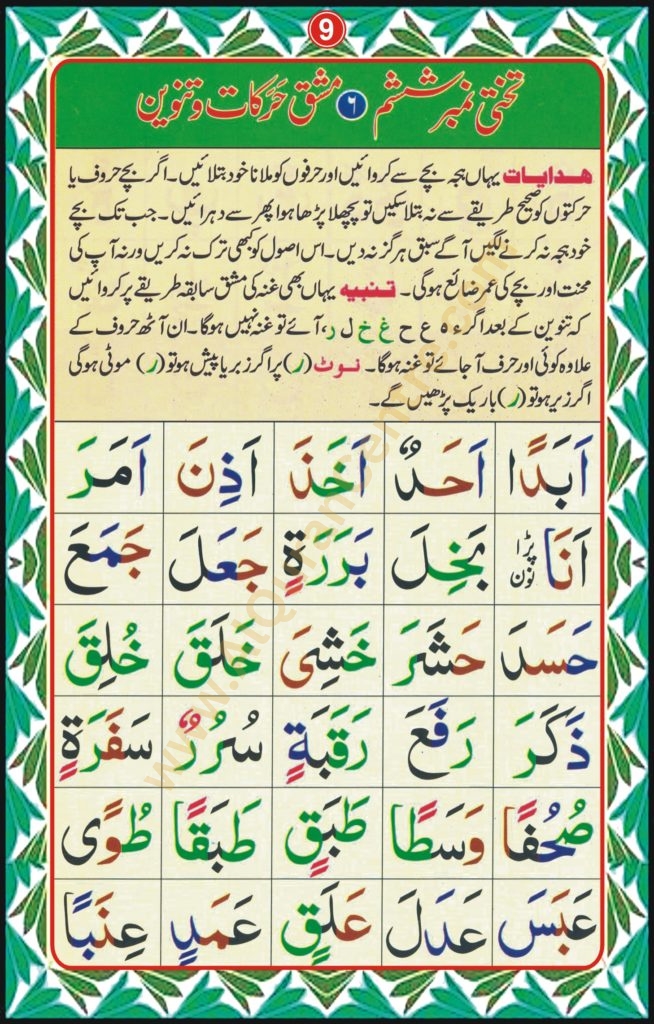 9
تختی نمبر ششم ٦ مشق حَرَکات و تنوین
ھدایات یہاں ہجہ بچے سے کروائیں اور حرفوں کو ملانا خود بتلائیں۔ اگر بچے حروف یا
حرکتوں کو صحیح طریقے سے نہ بتلا سکیں تو پچھلا پڑھا ہوا پھر سے دہرائیں۔ جب تک بچے
خود ہجہ نہ کرنے لگیں آگے سبق ہرگز نہ دیں۔ اس اصول کو کبھی ترک نہ کریں ورنہ آپ کی
محنت اور بچے کی عمر ضائع ہوگی۔ تنبیہ یہاں بھی غنہ کی مشق سابقہ طریقے پر کروائیں
کہ تنوین کے بعد اگر ء ہ ع ح غ خ ل ر، آئے تو غنہ نہیں ہوگا۔ ان آٹھ حروف کے
علاوہ کوئی اور حرف آجائے تو غنہ ہوگا۔ نوٹ (ر) پر اگر زبر یا پیش ہو تو (ر) موٹی ہوگی
اگر زیر ہو تو (ر) باریک پڑھیں گے۔
اَبَدًا اَحَدٌ اَخَذَ اَذِنَ اَمَرَ
اَنَا پڑا نون بَخِلَ بَرَرَةٍ جَعَلَ جَمَعَ
حَسَدَ حَشَرَ خَشِیَ خَلَقَ خُلِقَ
ذَكَرَ رَفَعَ رَقَبَةٍ سُرُرٌ سَفَرَةٍ
صُحُفًا وَسَطًا طَبَقٍ طَبَقًا طُوًی
عَبَسَ عَدَلَ عَلَقٍ عَمَدٍ عِنَبًا